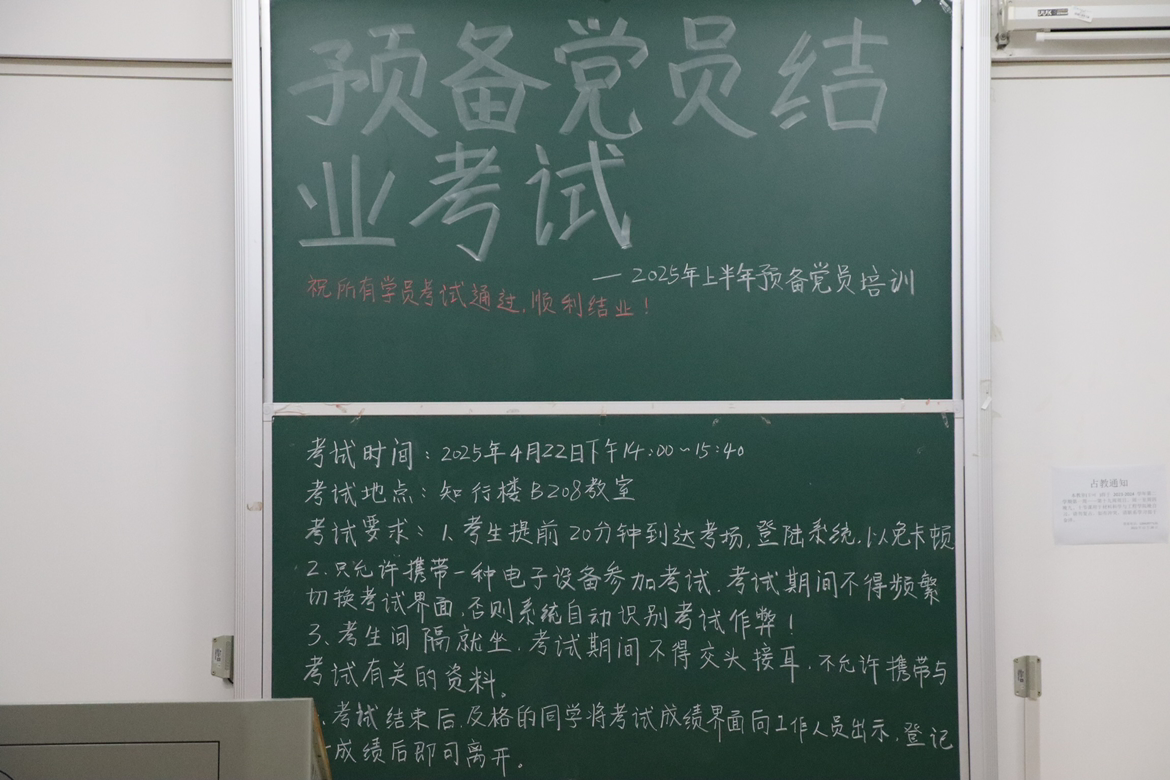 预备党员结
业考试
— 2025年上半年预备党员培训
祝所有学员考试通过,顺利结业!
考试时间:2025年4月22日下午14:00~15:40
考试地点:知行楼B208教室
考试要求:1、考生提前20分钟到达考场,登陆系统,以免卡顿
2、只允许携带一种电子设备参加考试,考试期间不得频繁
切换考试界面,否则系统自动识别考试作弊!
3、考生间隔就坐,考试期间不得交头接耳,不允许携带与
考试有关的资料。
、考试结束后,及格的同学将考试成绩界面向工作人员出示,登记
成绩后即可离开。
占教通知